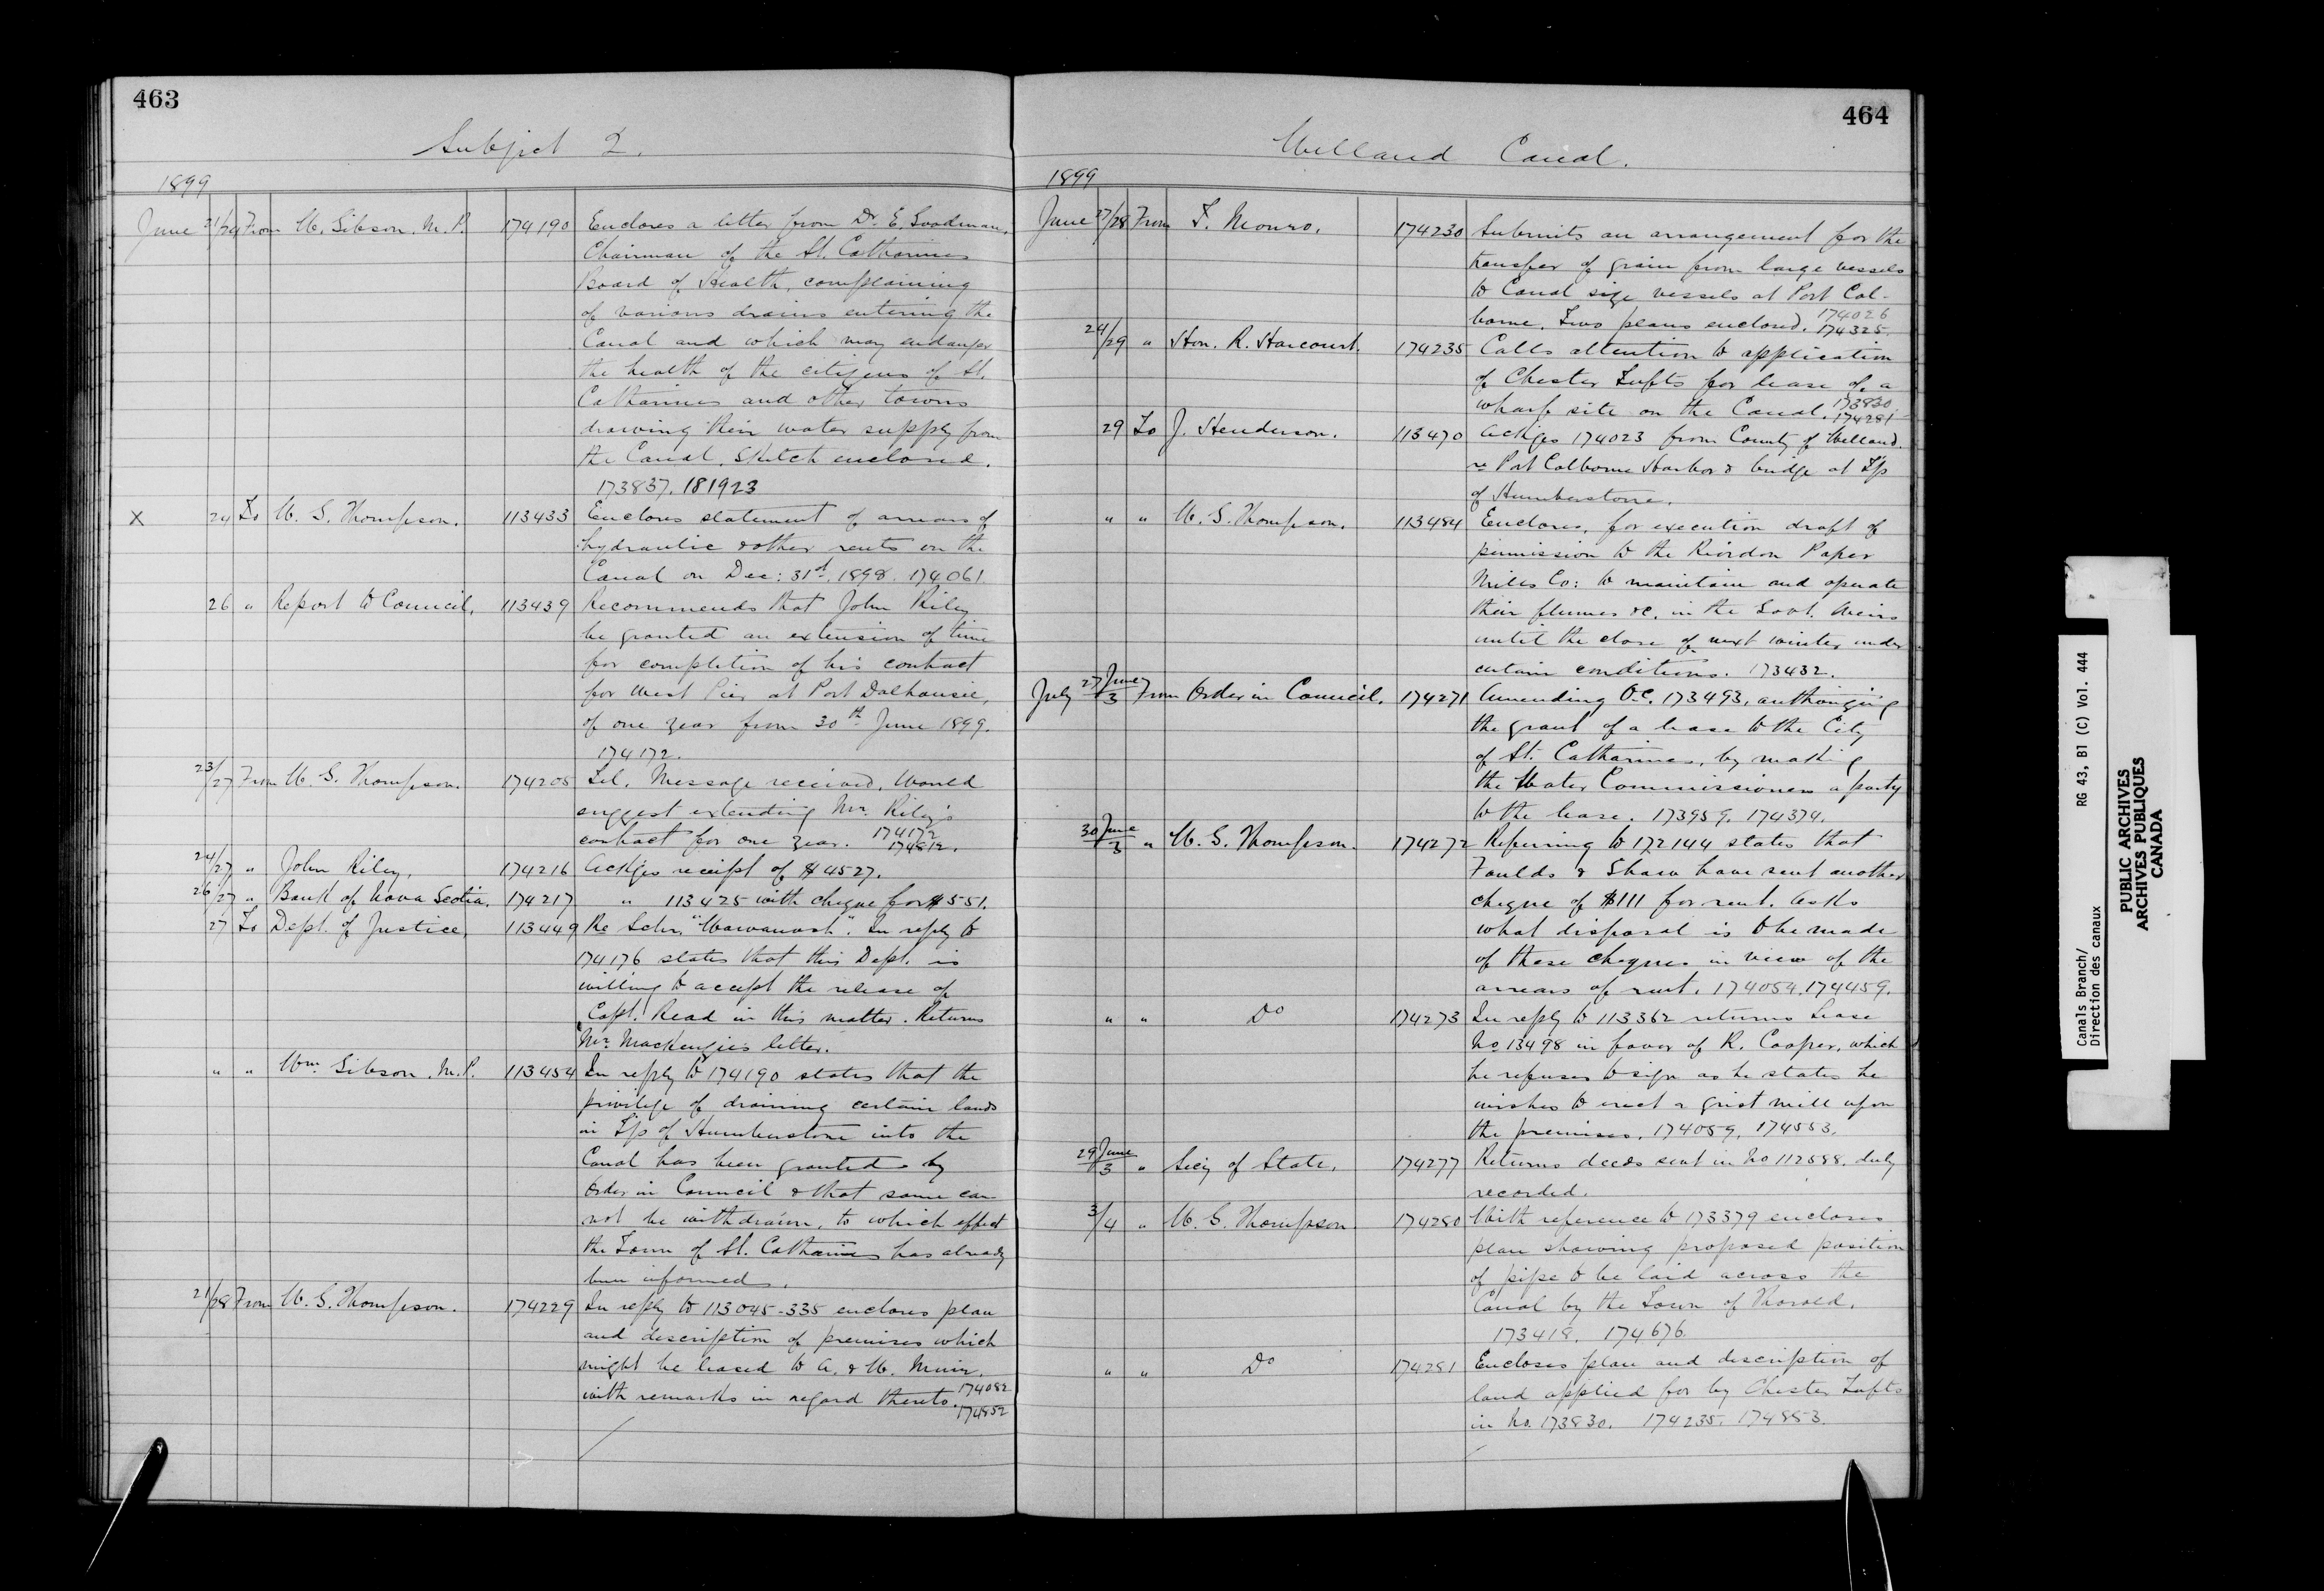 463
Subject 2.
1899
June 21/24 From W. Gibson. M.P. 174190 Encloses a letter from Dr. E. Goodman,
Chairman of the St. Catharines
Board of Health, complaining
of various drains entering the
Canal and which may endanger
the health of the citizens of St.
Catharines and other towns
drawing their water supply from
the Canal. Sketch enclosed.
173837. 181923
X 24 To W. G. Thompson. 113433 Encloses statement of arrears of
hydraulic & other rents on the
Canal on Dec: 31st, 1898. 174061.
26 " Report to Council, 113439 Recommends that John Riley
be granted an extension of time
for completion of his contract
for West Pier at Port Dalhousie,
of one year from 30th June 1899.
174172.
23/27 From W. G. Thompson. 174205 Tel. Message received. Would
suggest extending Mr. Riley's
contract for one year. 174172 174812.
24/27 " John Riley, 174216 Ackges receipt of $4527.
26/27 " Bank of Nova Scotia. 174217 " 113425 with cheque for $551.
27 To Dept. of Justice, 113449 Re Schr. "Wawanosh". In reply to
174176 states that this Dept. is
willing to accept the release of
Capt. Read in this matter. Returns
Mr. Mackenzie's letter.
" " Wm. Gibson. M.P. 113454 In reply to 174190 states that the
privilege of draining certain lands
in T'p of Humberstone into the
Canal has been granted by
Order in Council & that same can
not be withdrawn, to which effect
the Town of St. Catharines has already
been informed.
21/28 From W. G. Thompson. 174229 In reply to 113045-335 encloses plan
and description of premises which
might be leased to A. & W. Muir,
with remarks in regard thereto. 174082
174852
464
Welland Canal.
1899
June 27/28 From F. Monro. 174230 Submits an arrangement for the
transfer of grain from large vessels
to Canal size vessels at Port Col-
borne. Two plans enclosed. 174026 174325.
24/29 " Hon. R. Harcourt. 174235 Calls attention to application
of Chester Tufts for lease of a
wharf site on the Canal. 173830. 174281
29 To J. Henderson. 113470 Ackges 174023 from County of Welland.
re Port Colborne Harbor & bridge at T'p
of Humberstone.
" " W. G. Thompson. 113484 Encloses, for execution draft of
permission to the Riordon Paper
Mills Co: to maintain and operate
their flumes &c. in the Govt. Weirs
until the close of next winter under
certain conditions. 173432.
July 27 June/3 From Order in Council. 174271 Amending O.C. 173493, authorizing
the grant of a lease to the City
of St. Catharines, by making
the Water Commissioners a party
to the lease. 173959. 174374.
30 June/3 " W. G. Thompson. 174272 Referring to 172144 states that
Foulds & Shaw have sent another
cheque of $111 for rent. Asks
what disposal is to be made
of these cheques in view of the
arrears of rent. 174054. 174459.
" " Do 174273 In reply to 113362 returns Lease
No 13498 in favor of R. Cooper, which
he refuses to sign as he states he
wishes to erect a grist mill upon
the premises. 174059, 174553.
29 June/3 " Secy of State, 174277 Returns deeds sent in No 112588. duly
recorded.
3/4 " W. G. Thompson 174280 With reference to 173379 encloses
plan showing proposed position
of pipe to be laid across the
Canal by the Town of Thorold.
173418. 174676.
" " Do 174281 Encloses plan and description of
land applied for by Chester Tufts
in No. 173830. 174235. 174853.
Canals Branch/
Direction des canaux
RG 43, B1 (C) Vol. 444
PUBLIC ARCHIVES
ARCHIVES PUBLIQUES
CANADA